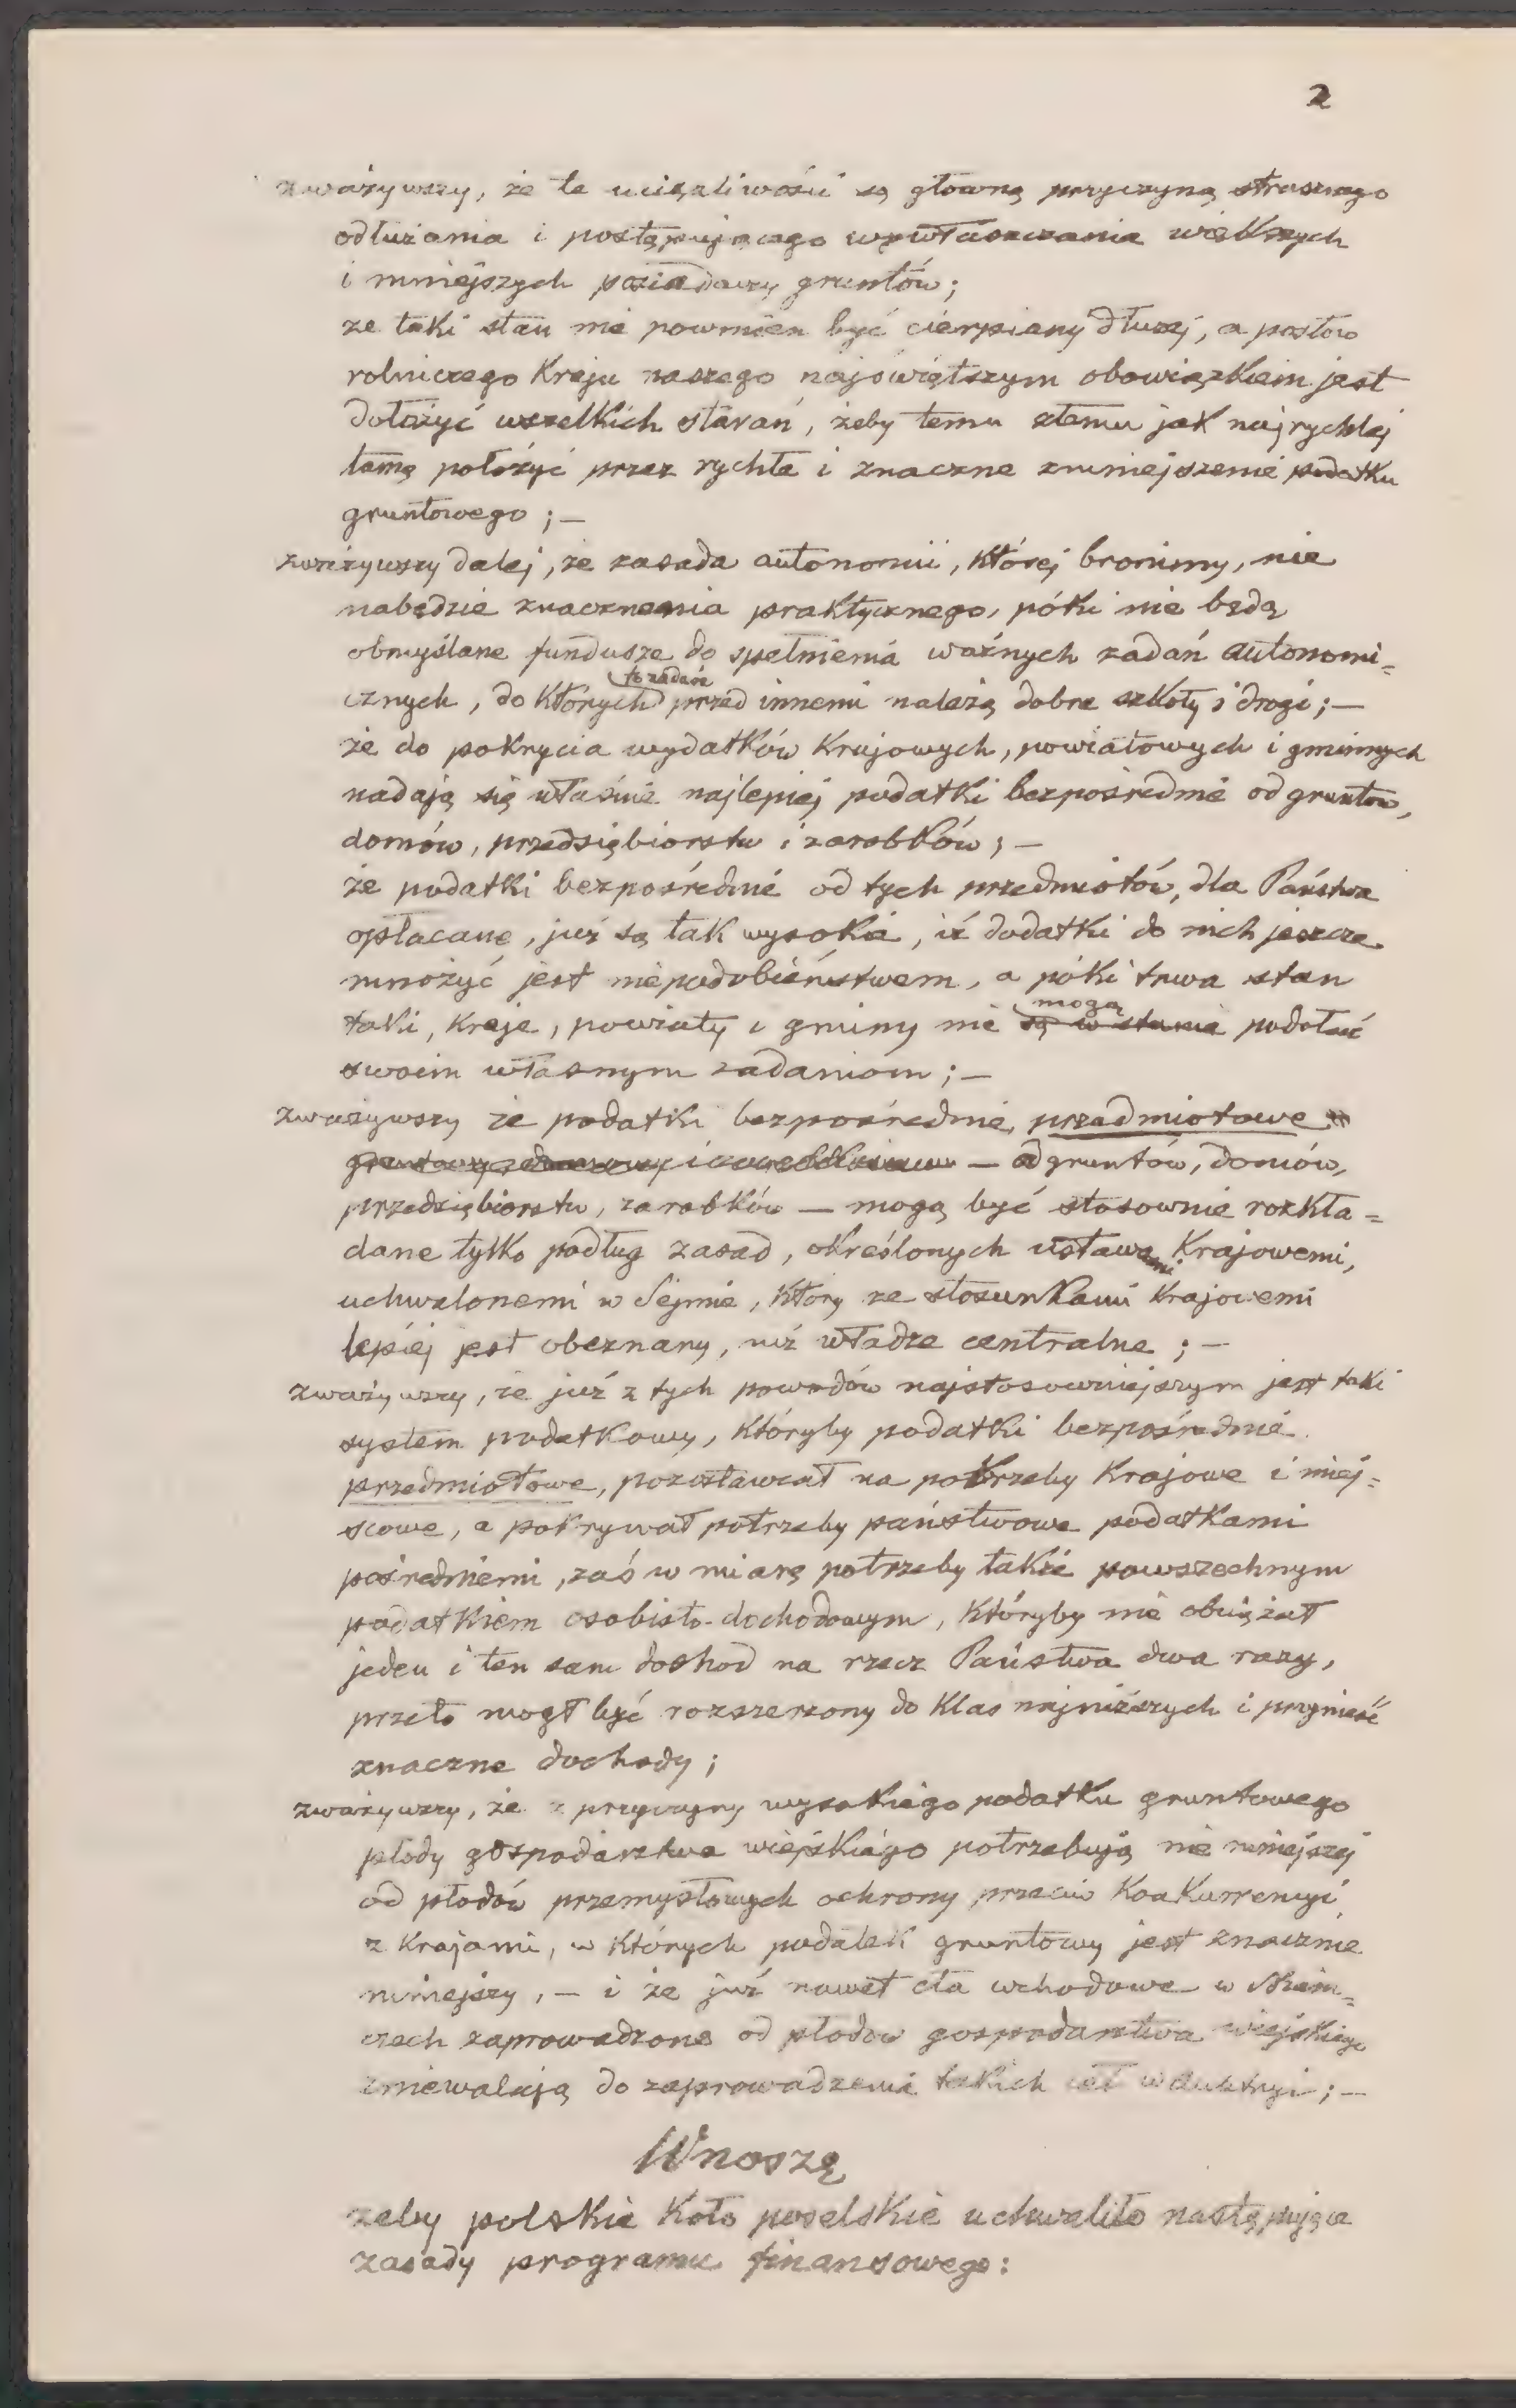 2
zważywszy, że te uciążliwości są główną przyczyną strasznego
odłużania i postępującego wywłaszczania większych
i mniejszych posiadaczy gruntów;
że taki stan nie powinien być cierpiany dłużej, a posłów
rolniczego Kraju naszego najświętszym obowiązkiem jest
dołożyć wszelkich starań, żeby temu złemu jak najrychlej
tamę położyć przez rychłe i znaczne zmniejszenie podatku
gruntowego; —
zważywszy dalej, że zasada autonomii, której bronimy, nie
nabędzie znaczenia praktycznego, póki nie będą
obmyślane fundusze do spełnienia ważnych zadań autonomi=
to zadań
cznych, do których przed innemi należą dobre szkoły i drogi; —
że do pokrycia wydatków Krajowych, powiatowych i gminnych
nadają się właśnie najlepiej podatki bezpośrednie od gruntów,
domów, przedsiębiorstw i zarobków; —
że podatki bezpośrednie od tych przedmiotów, dla Państwa
opłacane, już są tak wysokie, iż dodatki do nich jeszcze
mnożyć jest niepodobieństwem, a póki trwa stan
mogą
taki, Kraje, powiaty i gminy nie są w stanie podołać
swoim własnym zadaniom; —
zważywszy że podatki bezpośrednie, przedmiotowe
— od gruntów, domów,
przedsiębiorstw, zarobków — mogą być stosownie rozkła=
dane tylko podług zasad, określonych ustawami Krajowemi,
uchwalonemi w Sejmie, który ze stosunkami Krajowemi
lepiej jest obeznany, niż władze centralne; —
zważywszy, że już z tych powodów najstosowniejszym jest taki
system podatkowy, któryby podatki bezpośrednie
przedmiotowe, pozostawiał na potrzeby Krajowe i miej=
scowe, a pokrywał potrzeby państwowe podatkami
pośredniemi, zaś w miarę potrzeby także powszechnym
podatkiem osobisto-dochodowym, któryby nie obciążał
jeden i ten sam dochod na rzecz Państwa dwa razy,
przeto mogł być rozszerzony do Klas najniższych i przynieść
znaczne dochody;
zważywszy, że z przyczyny wysokiego podatku gruntowego
płody gospodarstwa wiejskiego potrzebują nie mniejszej
od płodów przemysłowych ochrony przeciw Konkurrencyi
z Krajami, w których podatek gruntowy jest znacznie
mniejszy, — i że już nawet cła wchodowe w Niem=
czech zaprowadzone od płodów gospodarstwa wiejskiego
zniewalają do zaprowadzenia takich ceł w Austryi; —
Wnoszę
żeby polskie Koło poselskie uchwaliło następujące
zasady programu finansowego: